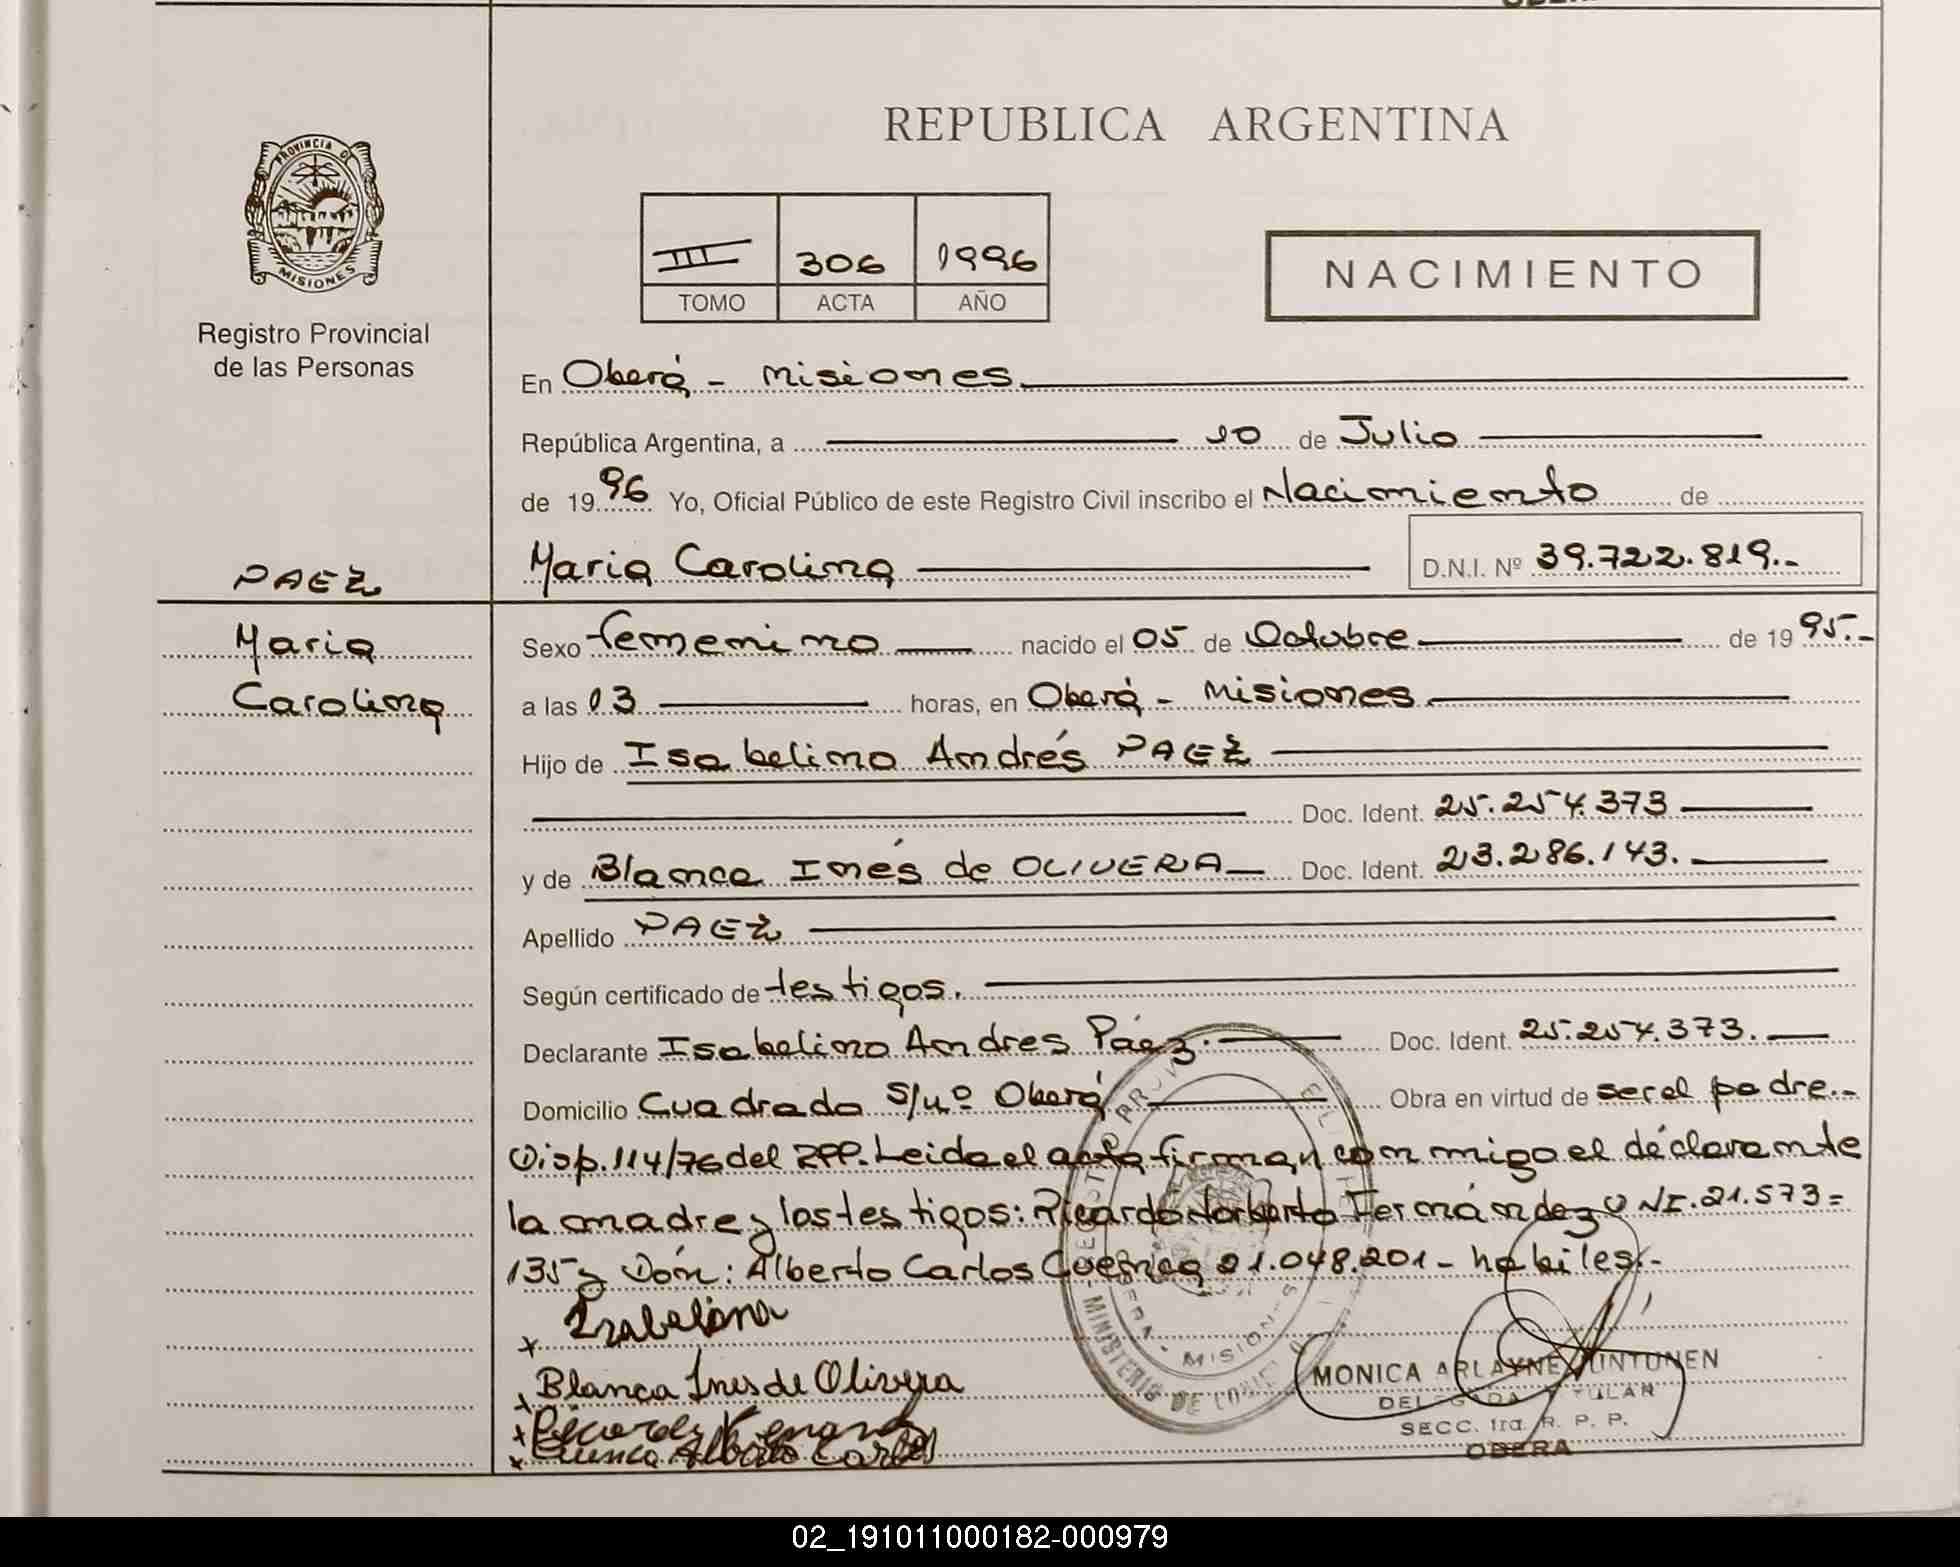 REPUBLICA ARGENTINA
PROVINCIA DE
MISIONES
Registro Provincial
de las Personas
III 306 1996
TOMO ACTA AÑO
NACIMIENTO
En Oberá - Misiones
República Argentina, a 10 de Julio
de 1996 Yo, Oficial Público de este Registro Civil inscribo el Nacimiento de
PAEZ
Maria Carolina D.N.I. Nº 39.722.819.-
Maria
Carolina
Sexo femenino nacido el 05 de Octubre de 1995.-
a las 13 horas, en Oberá - Misiones
Hijo de Isabelino Andrés PAEZ
Doc. Ident. 25.254.373
y de Blanca Inés de OLIVERA Doc. Ident. 23.286.143.
Apellido PAEZ
Según certificado de testigos.
Declarante Isabelino Andres Páez. Doc. Ident. 25.254.373.
Domicilio Cuadrado S/nº Oberá Obra en virtud de ser el padre.-
Disp. 114/76 del RPP. Leida el acta firman conmigo el declarante
la madre y los testigos: Ricardo Norberto Fernández DNI. 21.573=
135 y Don: Alberto Carlos Cuenca 21.048.201 - habiles.-
x Isabelino
x Blanca Ines de Olivera
x Ricardo
x Cuenca Alberto Carlos
MISIONES
MINISTERIO DE
MONICA ARLAYNE
SECC. 1ra. R. P. P.
OBERA
02_191011000182-000979